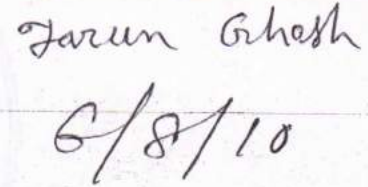 Tarun Ghosh
6/8/10